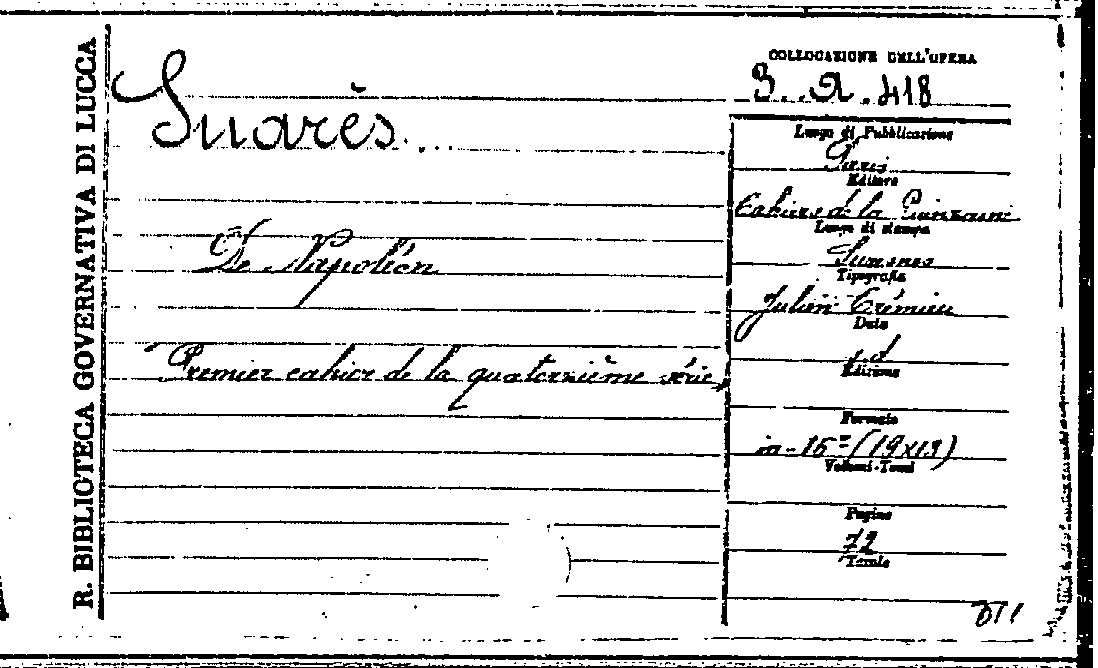 R. BIBLIOTECA GOVERNATIVA DI LUCCA
Suarès...
De Napoléon
Premier cahier de la quatorzième série,
COLLOCAZIONE DELL'OPERA
3..A.418
Luogo di Pubblicazione
Paris
Editore
Cahiers de la Quinzaine
Luogo di stampa
Suresnes
Tipografia
Julien Crémieu
Data
s.d
Edizione
Formato
in-16= (19x13)
Volumi-Tomi
Pagine
72
Tavole